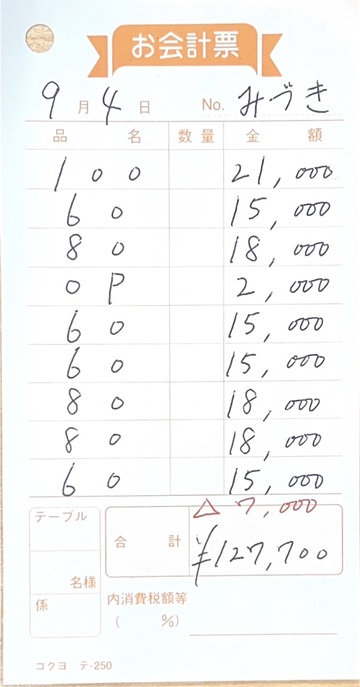 お会計票
9月4日 No. みづき
品名 数量 金額
100 21,000
60 15,000
80 18,000
OP 2,000
60 15,000
60 15,000
80 18,000
80 18,000
60 15,000
△ 7,000
テーブル
合計 ¥127,700
名様
係
内消費税額等
( %)
コクヨ テ-250